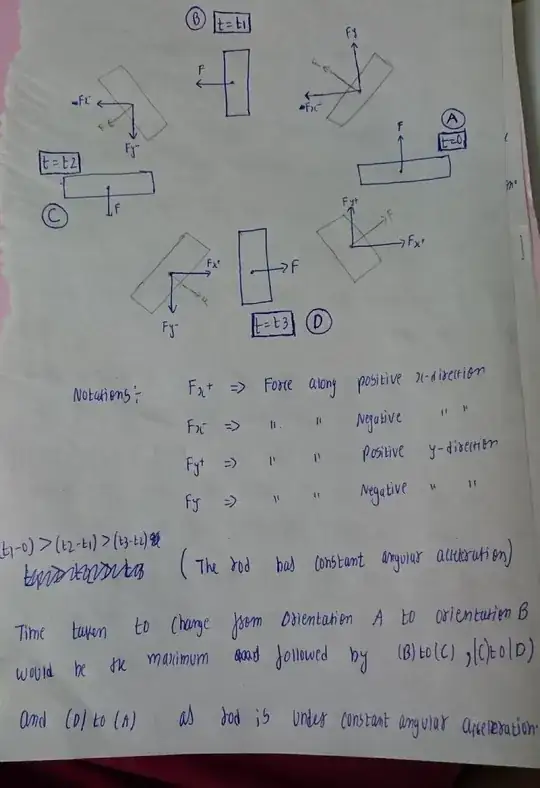 B t=t1
Fy
F
Fx-
Fx-
A
F
t=0
Fy-
t=t2
C
F
Fy+
F
Fx+
Fx+
F
Fy-
t=t3 D
Notations:- Fx+ => Force along positive x-direction
Fx- => " " Negative " "
Fy+ => " " positive y-direction
Fy- => " " Negative " "
(t1-0) > (t2-t1) > (t3-t2)
(The rod has constant angular acceleration)
Time taken to change from orientation A to orientation B
would be the maximum followed by (B) to (C), (C) to (D)
and (D) to (A) as rod is under constant angular acceleration.